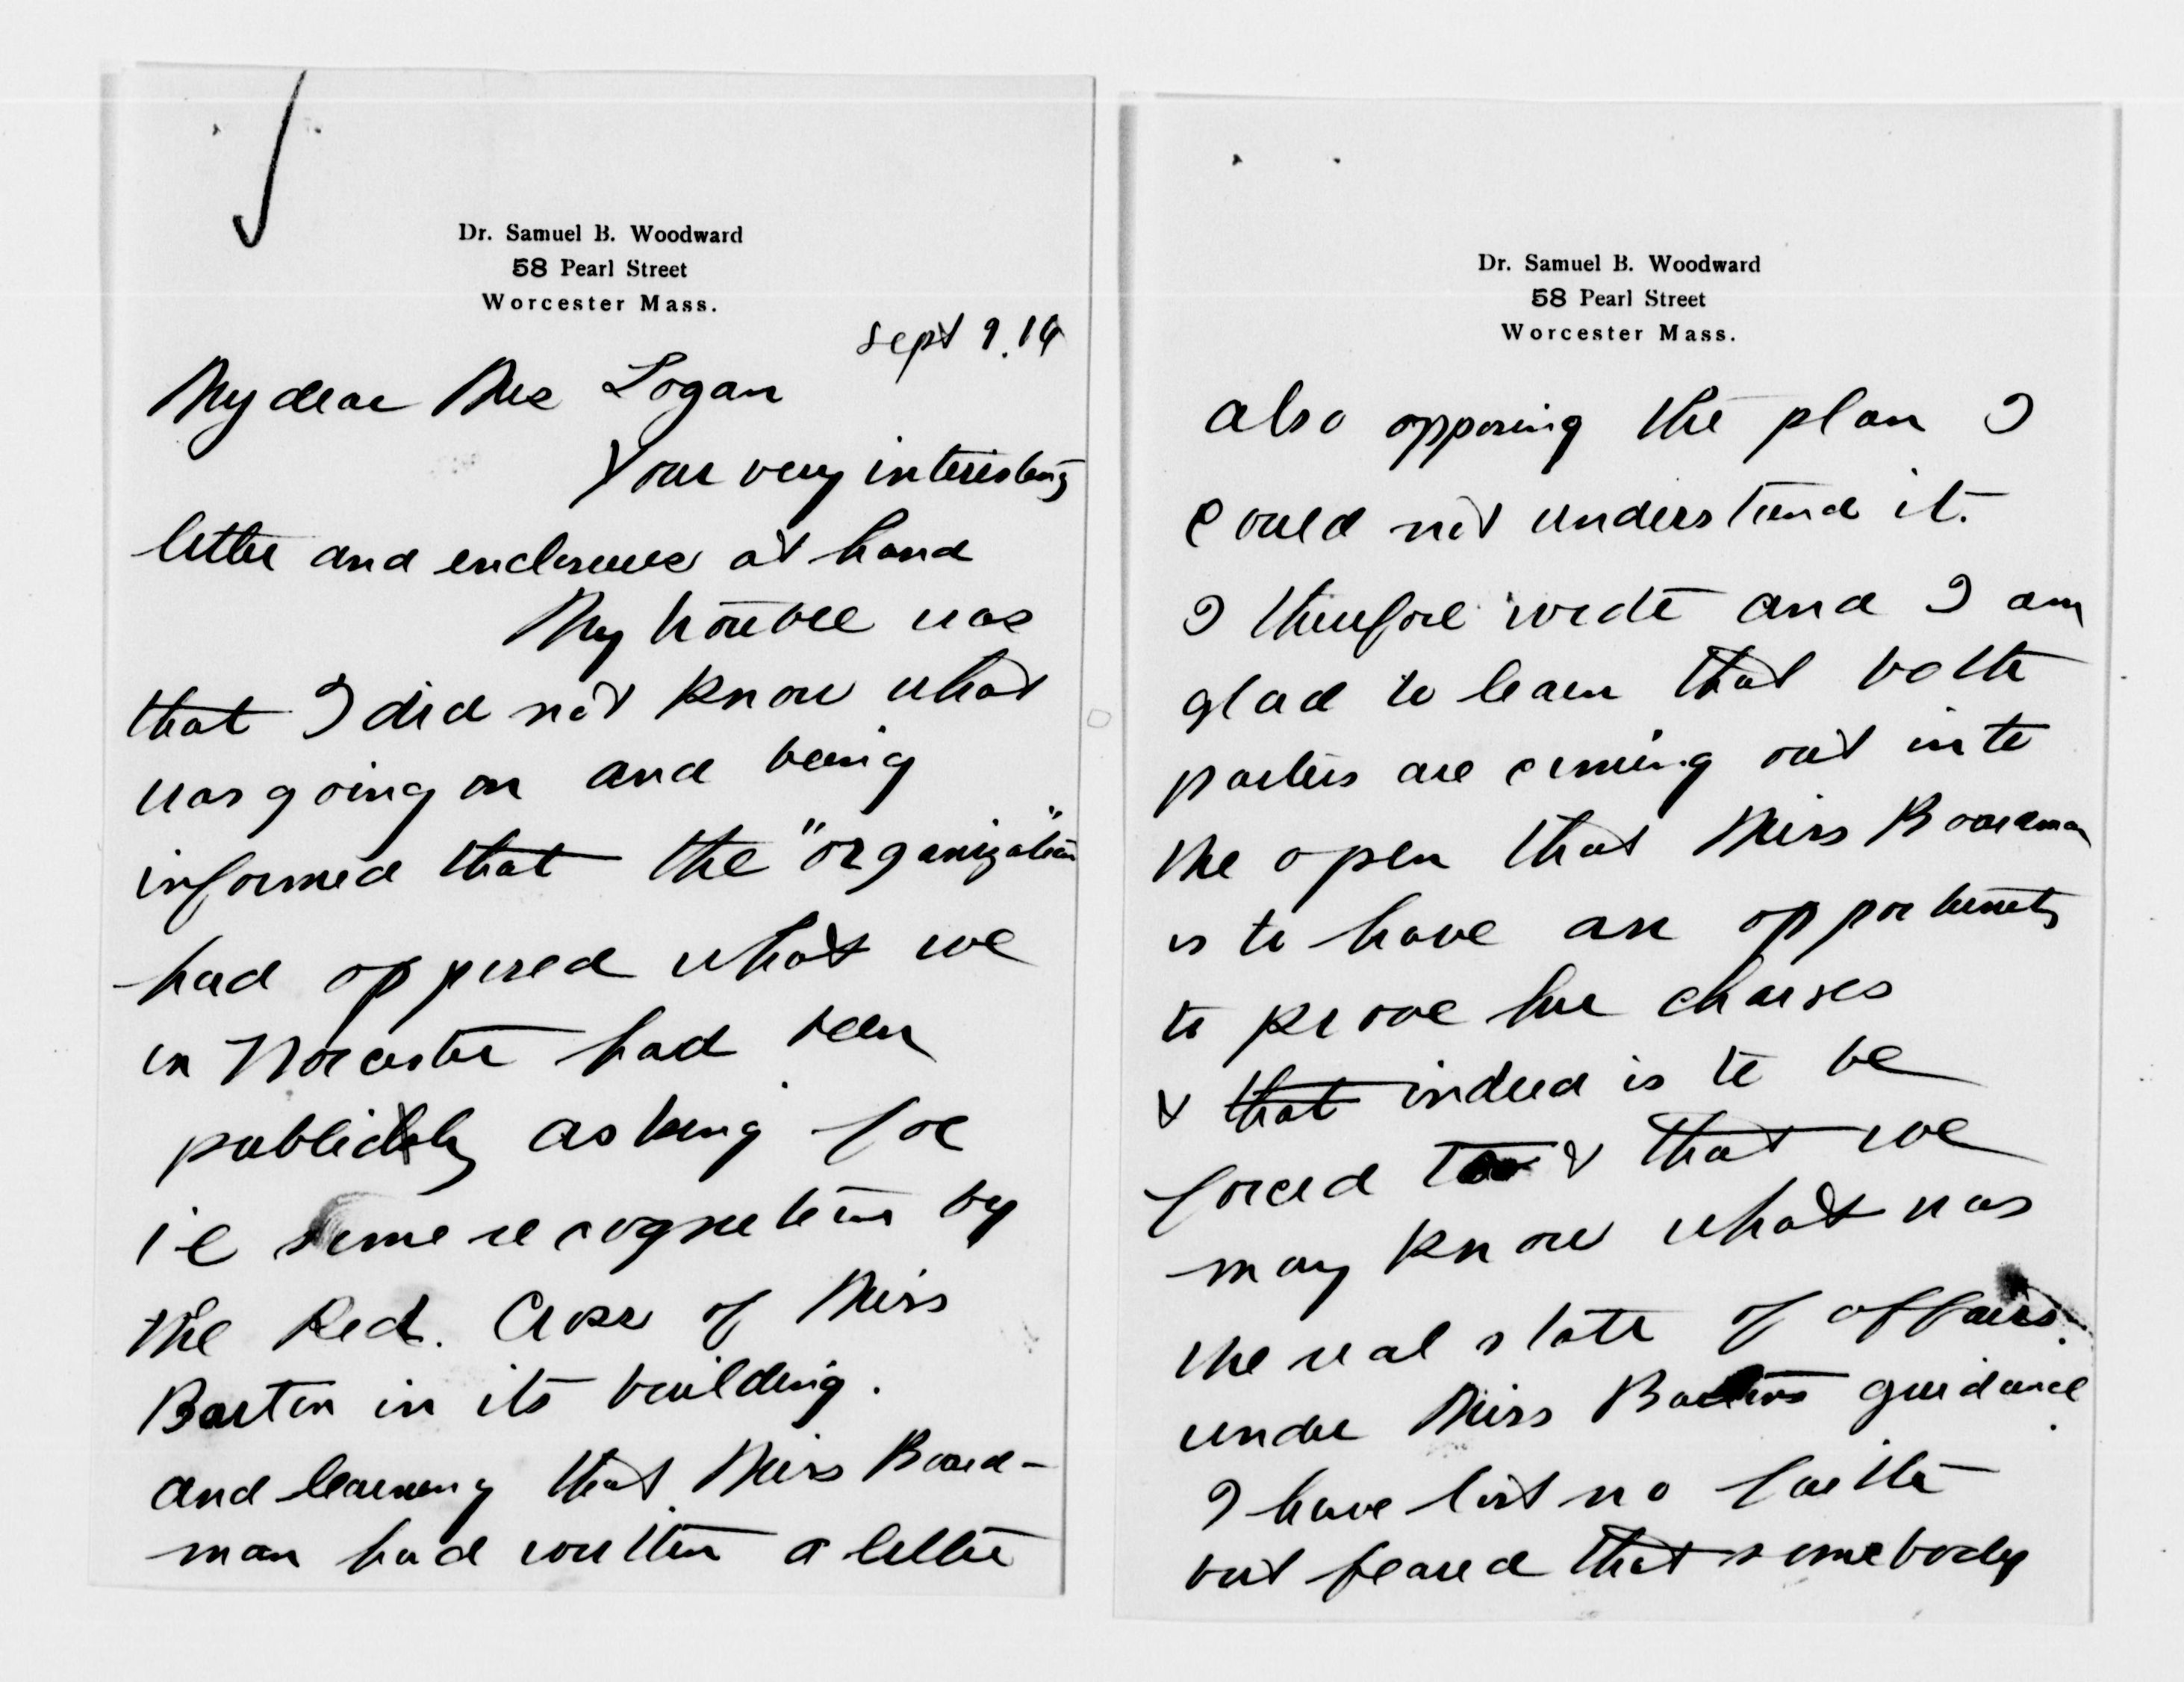 Dr. Samuel B. Woodward
58 Pearl Street
Worcester Mass.
Sept 9. 16
My dear Mrs Logan
Your very interesting
letter and enclosures at hand
My trouble was
that I did not know what
was going on and being
informed that the "organization"
had opposed what we
in Worcester had been
publickly asking for
i e some recognition by
the Red. Cross of Miss
Barton in its building.
and learning that Miss Board-
man had written a letter
Dr. Samuel B. Woodward
58 Pearl Street
Worcester Mass.
also opposing the plan I
could not understand it.
I therefore wrote and I am
glad to learn that both
parties are coming out into
the open that Miss Boardman
is to have an opportunity
to prove her charges
& that indeed is to be
forced to & that we
may know what was
the real state of affairs.
under Miss Bartons guidance.
I have lost no faith
but feared that somebody